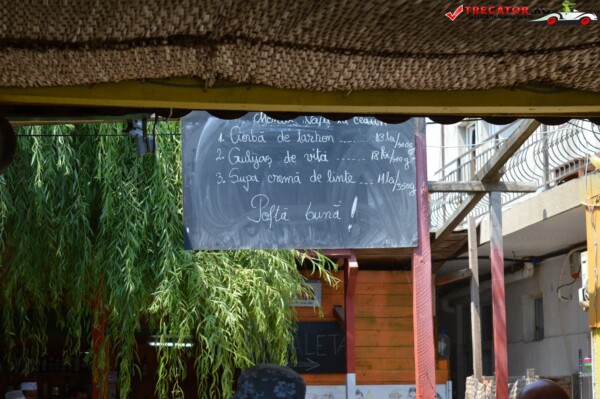 TRECATOR.EU
1. Ciorbă de tarhon .... 13 lei/500g
2. Gulyaș de vită ...... 18 lei/500g
3. Supa cremă de linte ... 11 lei/350g
Poftă bună !
LETA